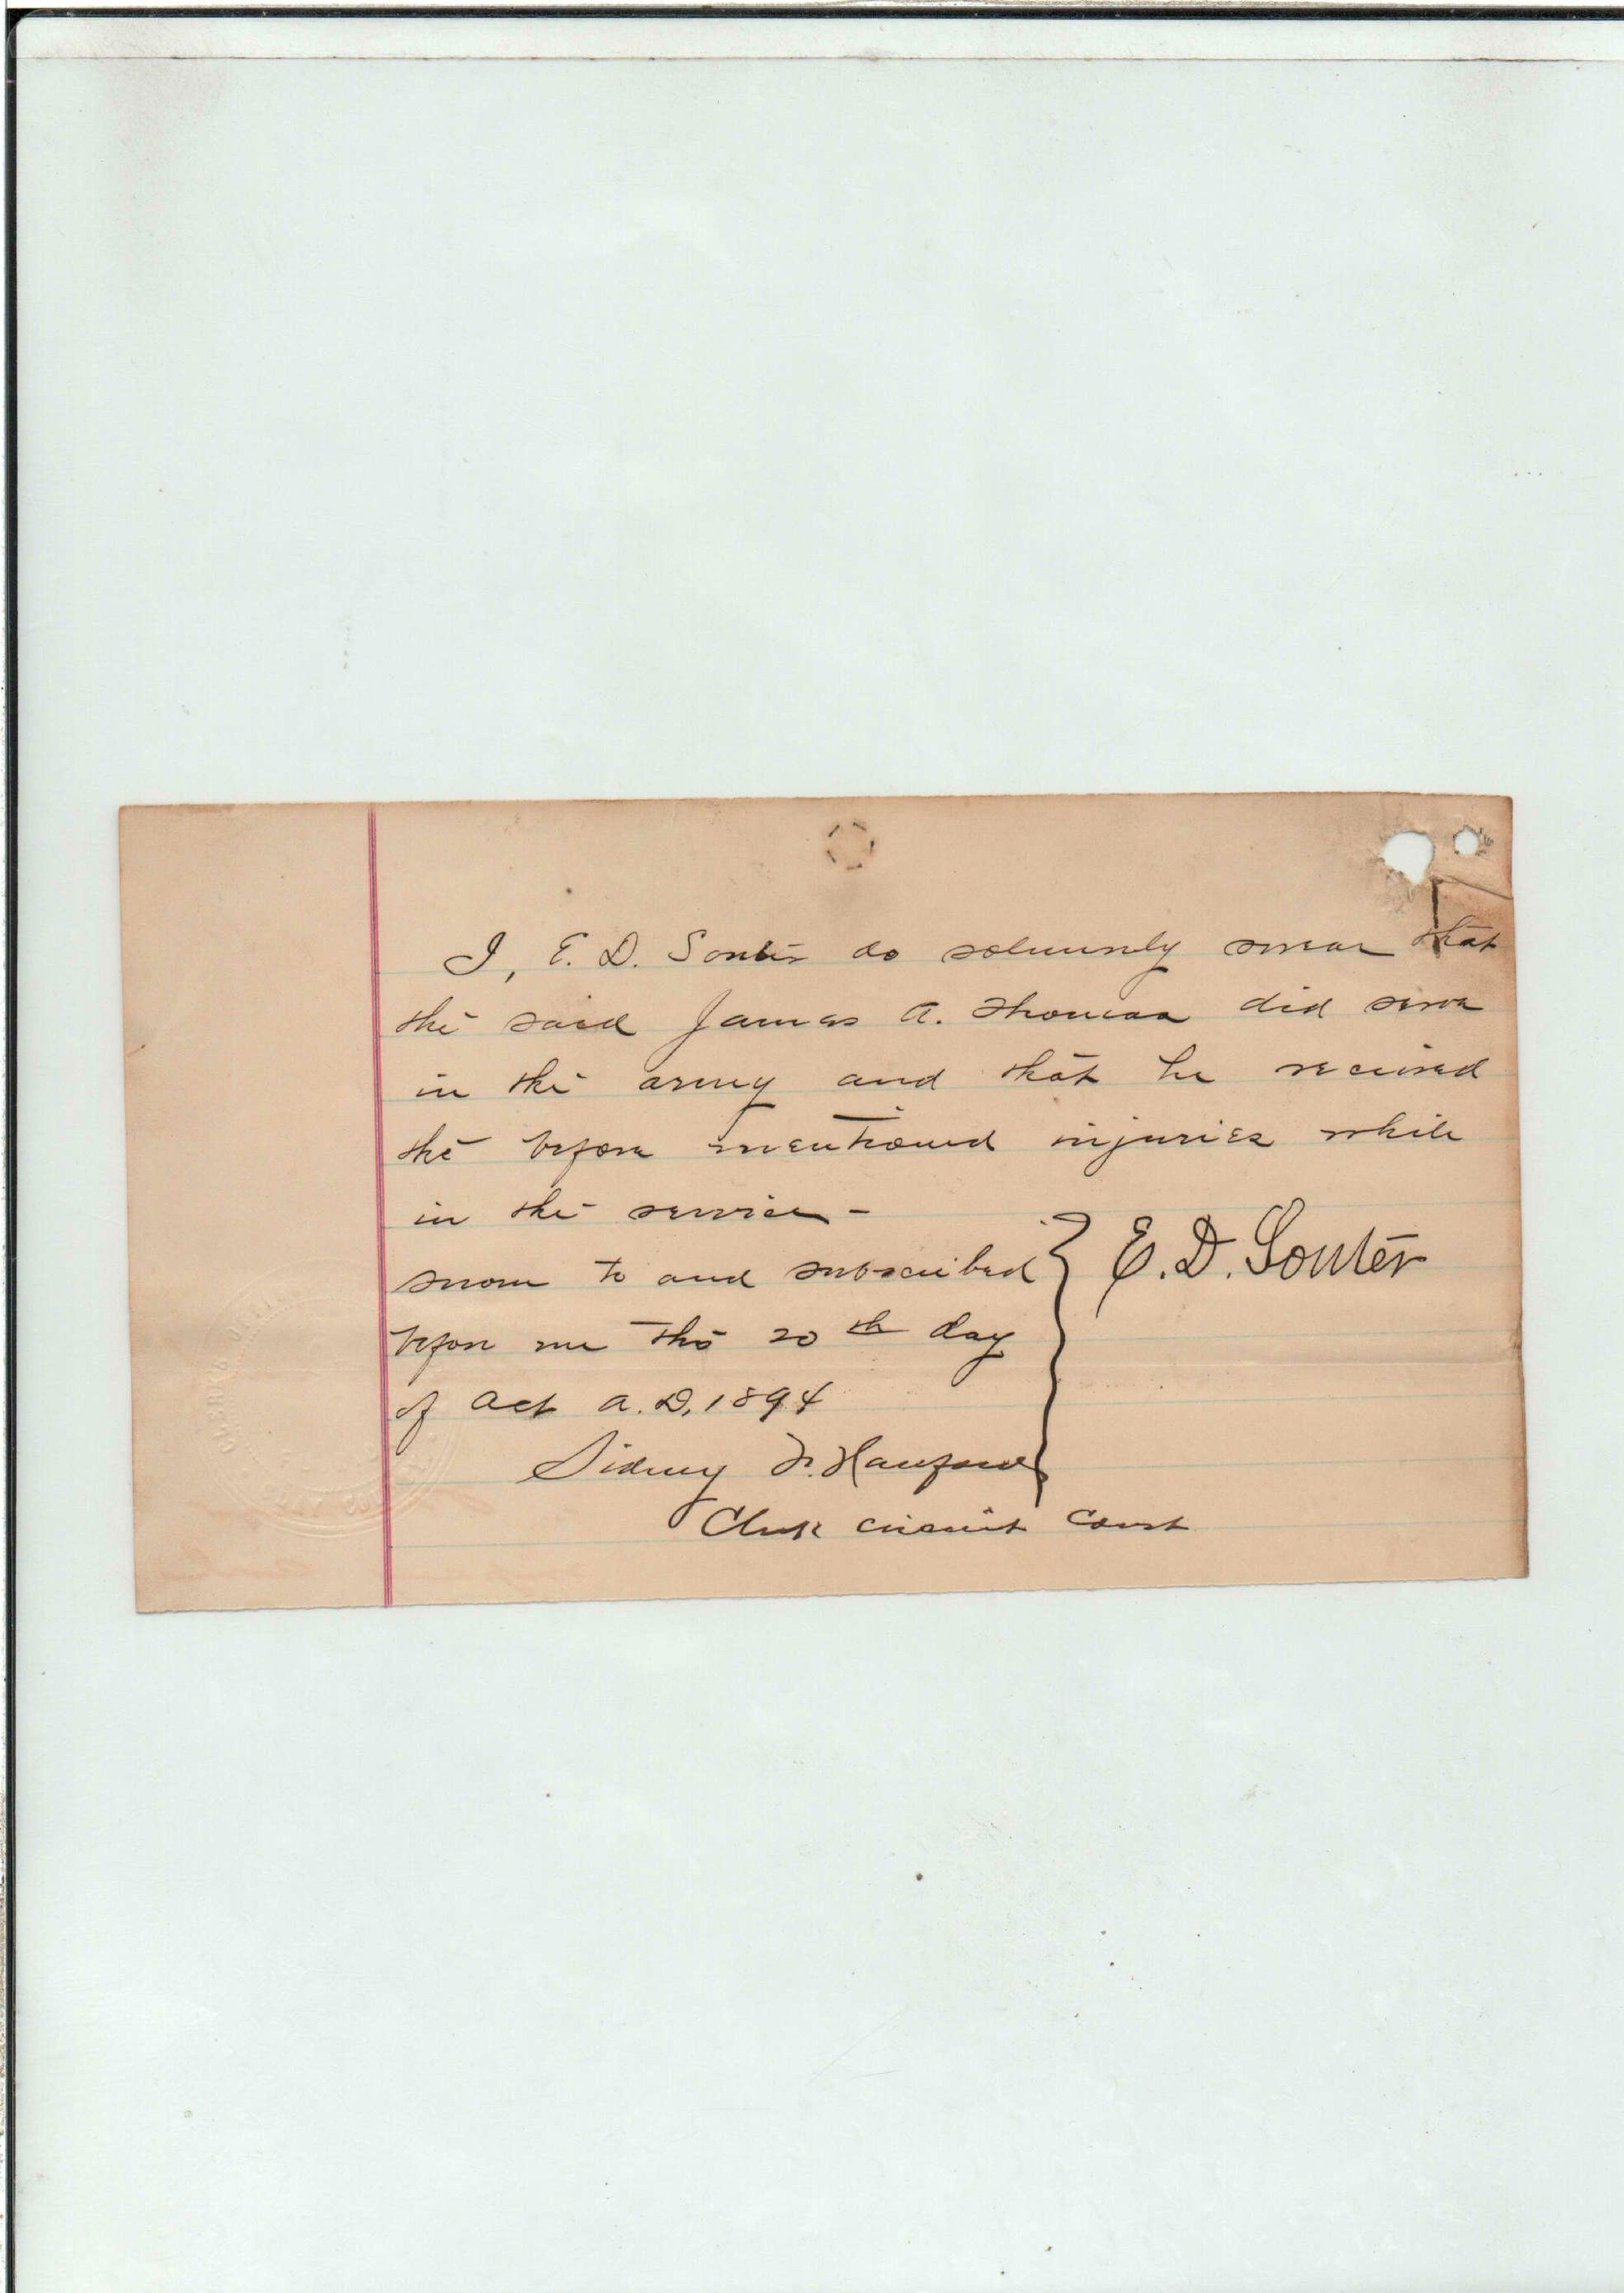 I, E. D. Souter do solemnly swear that
the said James A. Thomas did serve
in the army and that he received
the before mentioned injuries while
in the service -
sworn to and subscribed } E. D. Souter
before me this 20th day
of Oct A.D. 1894
Sidney
Clerk circuit court